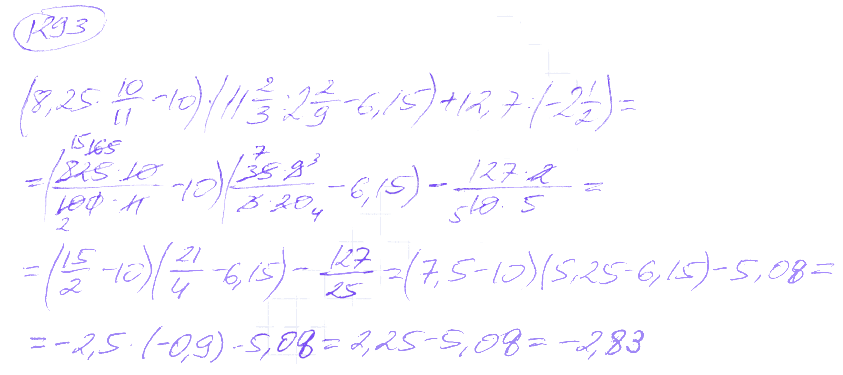 1293
(8,25 · 10/11 - 10) · (11 2/3 : 2 2/9 - 6,15) + 12,7 : (-2 1/2) =
= (825 · 10 / 100 · 11 - 10) (35 · 9 / 3 · 20 - 6,15) - 127 · 2 / 10 · 5 =
= (15/2 - 10) (21/4 - 6,15) - 127/25 = (7,5 - 10) (5,25 - 6,15) - 5,08 =
= -2,5 · (-0,9) - 5,08 = 2,25 - 5,08 = -2,83